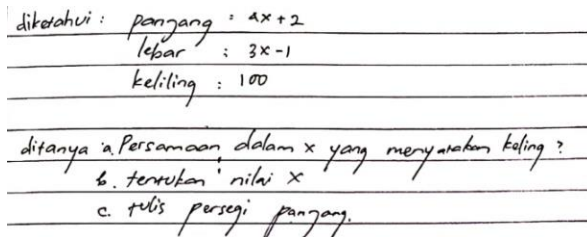 diketahui : panjang : 4x + 2
lebar : 3x - 1
keliling : 100
ditanya a. Persamaan dalam x yang menyatakan keling ?
b. tentukan nilai x
c. tulis persegi panjang.